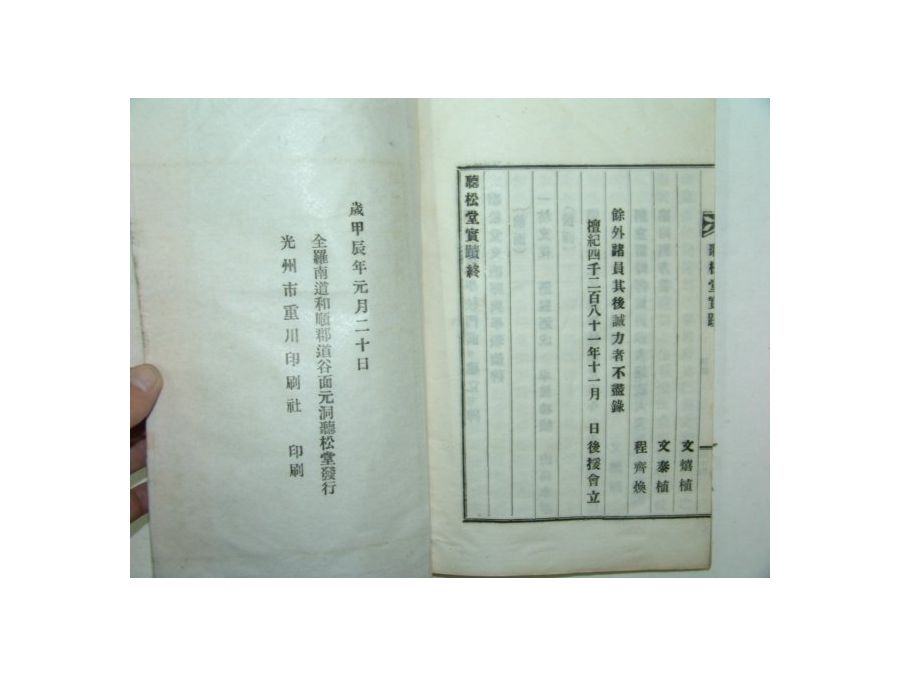 聽松堂實蹟
文熺植
文泰植
程齊煥
餘外諸員其後誠力者不盡錄
檀紀四千二百八十一年十一月 日後援會立
聽松堂實蹟終
歲甲辰年元月二十日
全羅南道和順郡道谷面元洞聽松堂發行
光州市重川印刷社 印刷